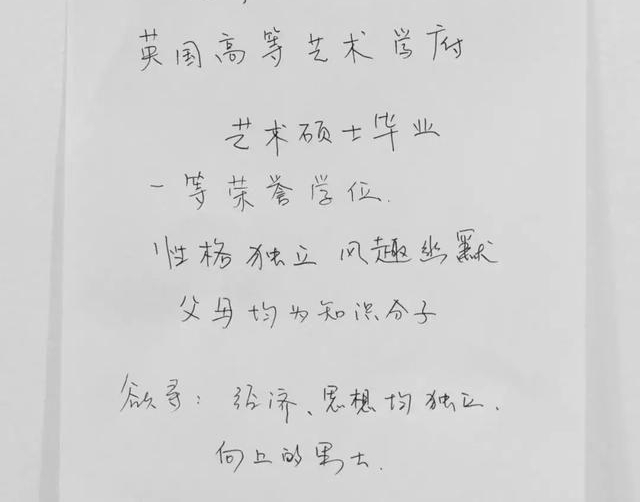 英国高等艺术学府
艺术硕士毕业
一等荣誉学位.
性格独立 风趣幽默
父母均为知识分子
欲寻：经济、思想均独立.
向上的男士.